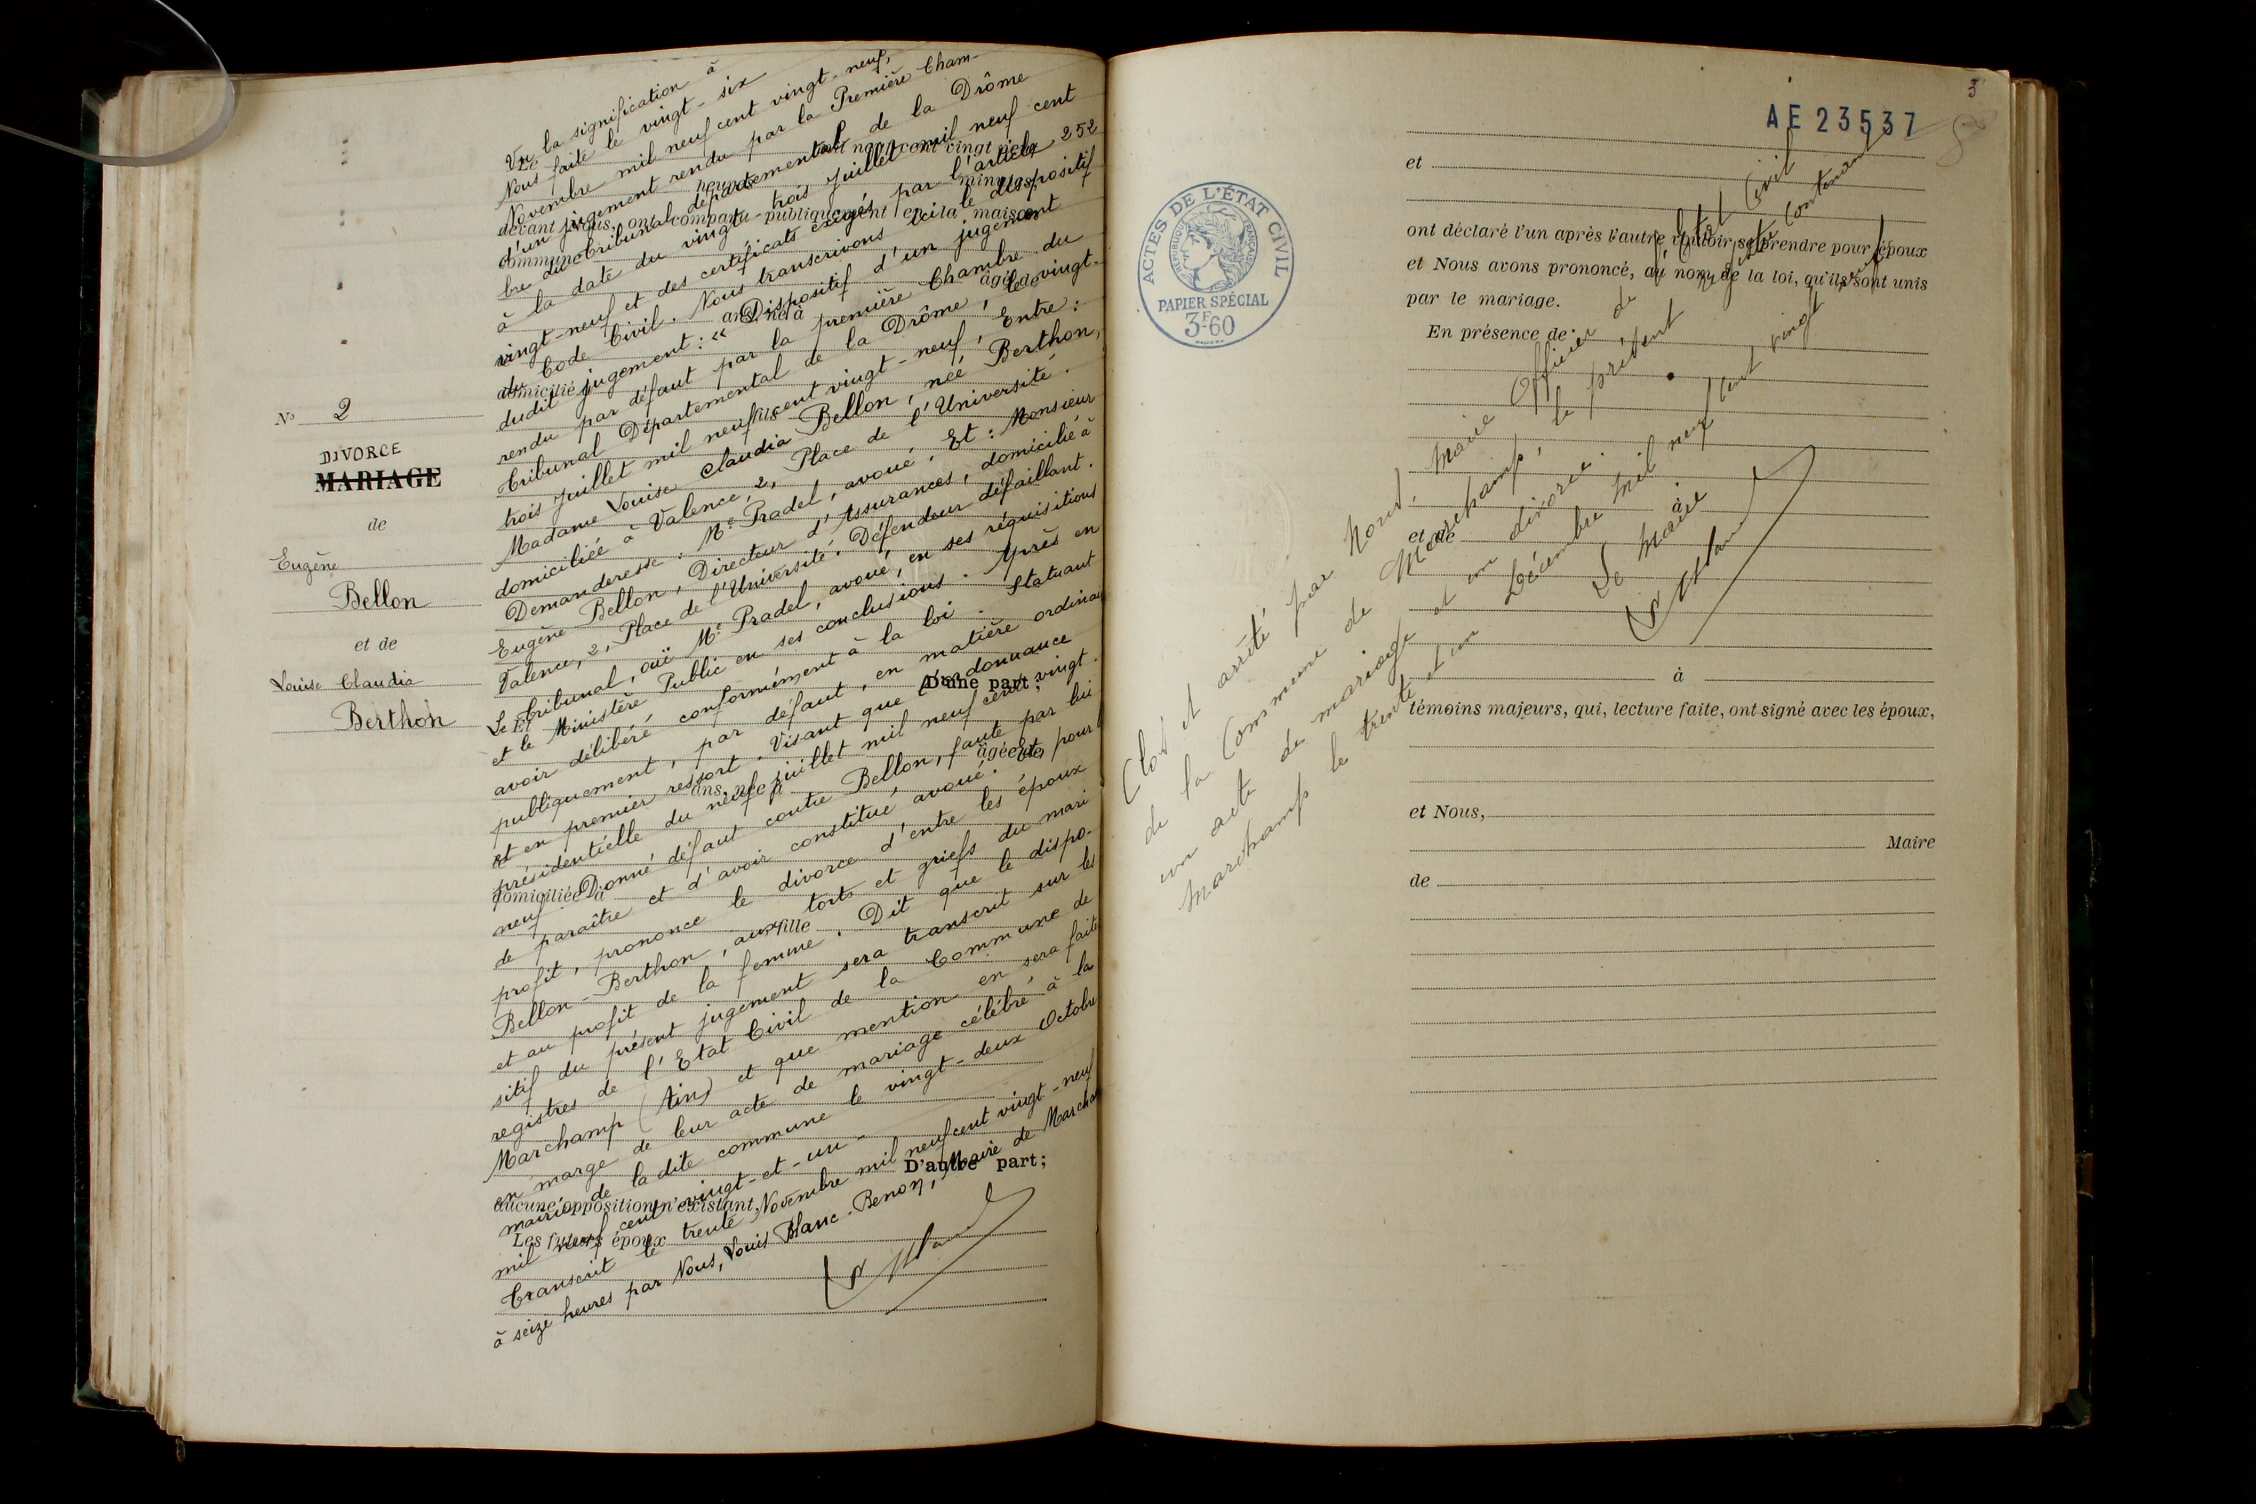 N° 2
DIVORCE
MARIAGE
de
Eugène
Bellon
et de
Louise Claudia
Berthon
Vu la signification à
Nous faite le vingt-six
Novembre mil neuf cent vingt-neuf,
d'un jugement rendu par la Première Cham-
bre du Tribunal départemental de la Drôme
à la date du vingt-trois Juillet mil neuf cent
vingt-neuf et des certificats exigés par l'article 252
du Code Civil. Nous transcrivons ici le dispositif
dudit jugement : « Dispositif d'un jugement
rendu par défaut par la première Chambre du
Tribunal Départemental de la Drôme, le vingt-
trois Juillet mil neuf cent vingt-neuf, Entre :
Madame Louise Claudia Bellon, née Berthon,
domiciliée à Valence, 2, Place de l'Université.
Demanderesse. Me Pradel, avoué. Et : Monsieur
Eugène Bellon, Directeur d'Assurances, domicilié à
Valence, 2, Place de l'Université. Défendeur défaillant.
Le Tribunal, ouï Me Pradel, avoué, en ses réquisitions
et le Ministère Public en ses conclusions. Après en
avoir délibéré conformément à la loi. Statuant
publiquement, par défaut, en matière ordinai
et en premier ressort. Visant que l'ordonnance
présidentielle du neuf juillet mil neuf cent vingt.
neuf. Donné défaut contre Bellon, faute par lui
de paraître et d'avoir constitué avoué. Et, pour l
profit, prononce le divorce d'entre les époux
Bellon-Berthon, aux torts et griefs du mari
et au profit de la femme. Dit que le dispo-
sitif du présent jugement sera transcrit sur les
registres de l'Etat Civil de la Commune de
Marchamp (Ain) et que mention en sera faite
en marge de leur acte de mariage célébré à la
mairie de la dite commune le vingt-deux Octobre
mil neuf cent vingt-et-un -
Transcrit le trente Novembre mil neuf cent vingt-neuf
à seize heures par Nous, Louis Blanc-Benon, Maire de Marcham
devant Nous, ont comparu publiquement en la maison
commune
heures
minutes,
âgé de
ans, né à
domicilié à
fils
D'une part;
Et
âgée de
ans, née à
domiciliée à
fille
D'autre part;
aucune opposition n'existant,
Les futurs époux
3
AE 23537
ACTES DE L'ÉTAT CIVIL
RÉPUBLIQUE FRANÇAISE
PAPIER SPÉCIAL
3F60
et
ont déclaré l'un après l'autre vouloir se prendre pour époux
et Nous avons prononcé, au nom de la loi, qu'ils sont unis
par le mariage.
En présence de
à
et de
à
témoins majeurs, qui, lecture faite, ont signé avec les époux,
et Nous,
Maire
de
Clos et arrêté par Nous, Maire Officier de l'Etat Civil
de la Commune de Marchamp, le présent registre contenant
un acte de mariage et un divorce.
Marchamp le trente et un Décembre mil neuf cent vingt neuf
Le Maire